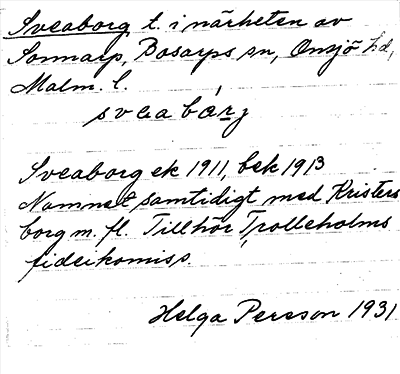 Sveaborg t. i närheten av
Sonnarp, Bosarps sn, Onsjö hd,
Malm. l.
sveabárj
Sveaborg ek 1911, bek 1913
Namnet samtidigt med Kristers
borg m. fl. Tillhör Trolleholms
fideikomiss.
Helga Persson 1931